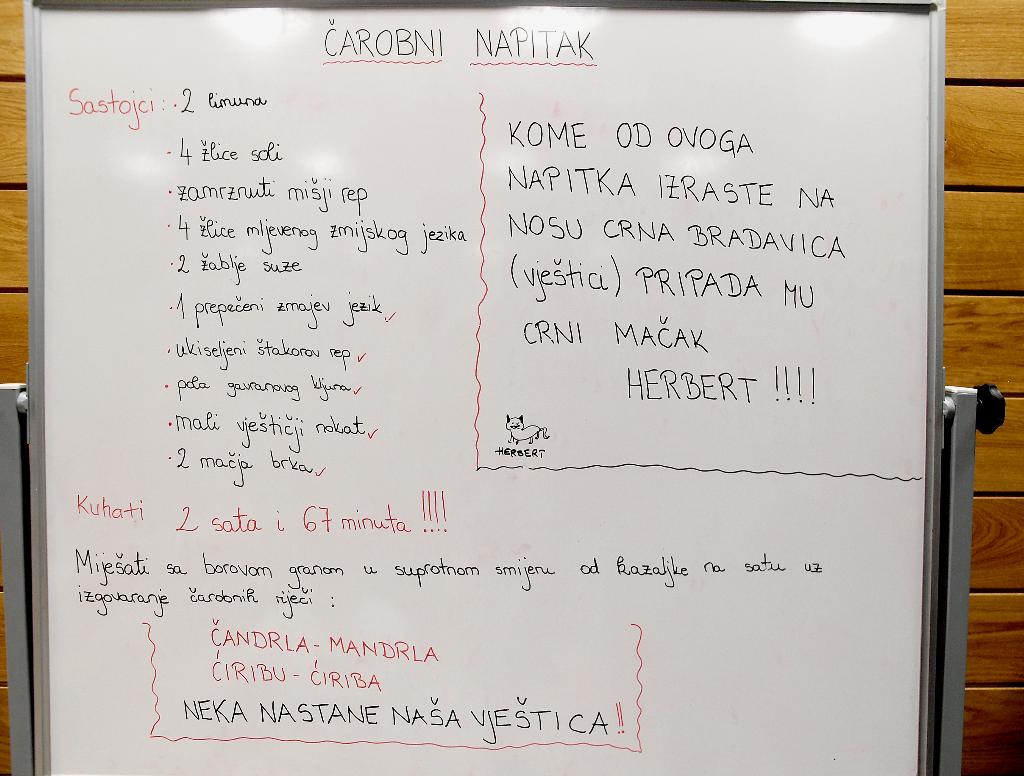 ČAROBNI NAPITAK
Sastojci: · 2 limuna
· 4 žlice soli
· zamrznuti mišji rep
· 4 žlice mljevenog zmijskog jezika
· 2 žablje suze
· 1 prepečeni zmajev jezik ✓
· ukiseljeni štakorov rep ✓
· pola gavranovog kljuna ✓
· mali vještičji nokat ✓
· 2 mačja brka ✓
KOME OD OVOGA
NAPITKA IZRASTE NA
NOSU CRNA BRADAVICA
(vještici) PRIPADA MU
CRNI MAČAK
HERBERT !!!!
HERBERT
Kuhati 2 sata i 67 minuta !!!!
Miješati sa borovom granom u suprotnom smijeru od kazaljke na satu uz
izgovaranje čarobnih riječi :
ČANDRLA - MANDRLA
ĆIRIBU - ĆIRIBA
NEKA NASTANE NAŠA VJEŠTICA !!